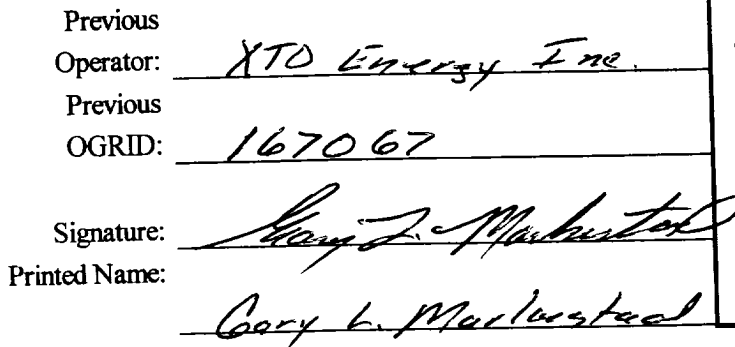 Previous
Operator: XTO Energy Inc.
Previous
OGRID: 167067
Signature: Gary L. Markestad
Printed Name:
Gary L. Markestad